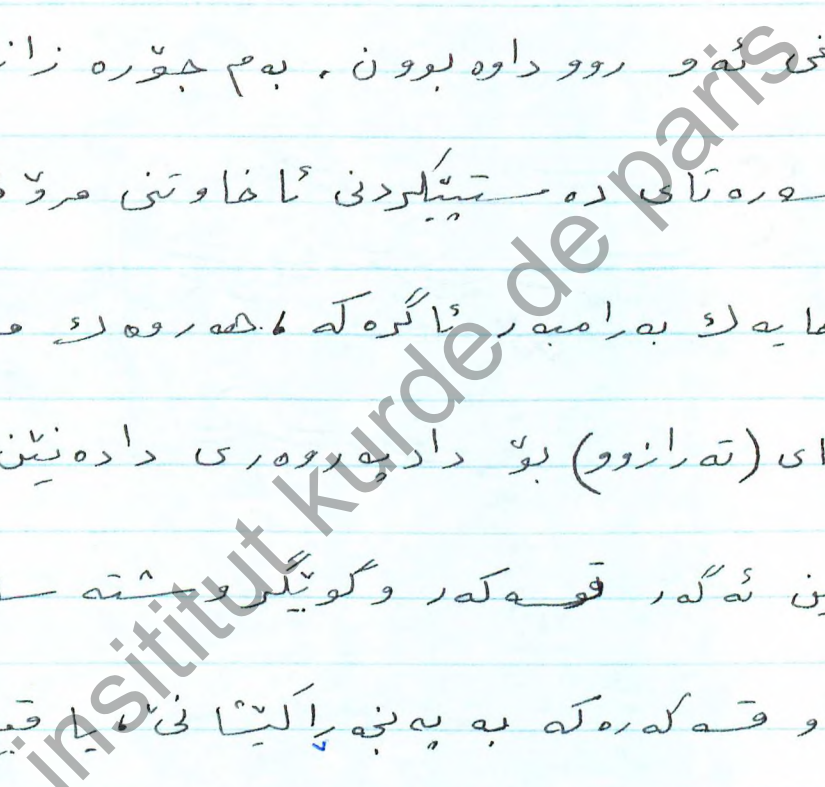 ئەو رووداوە بوون. بەم جۆرە زان
سەرەتای دەستپێکردنی ئاخاوتنی مرۆ
مایەك بەرامبەر ئاگرەکە، هەروەك و
ای (تەرازوو) بۆ دادپەروەری دادەنێن
ین ئەگەر قسەکەر و گوێگر وشتە
و قسەکەرەکە بە پەنجە ڕاکێشانێ، یا
insititut kurde de paris